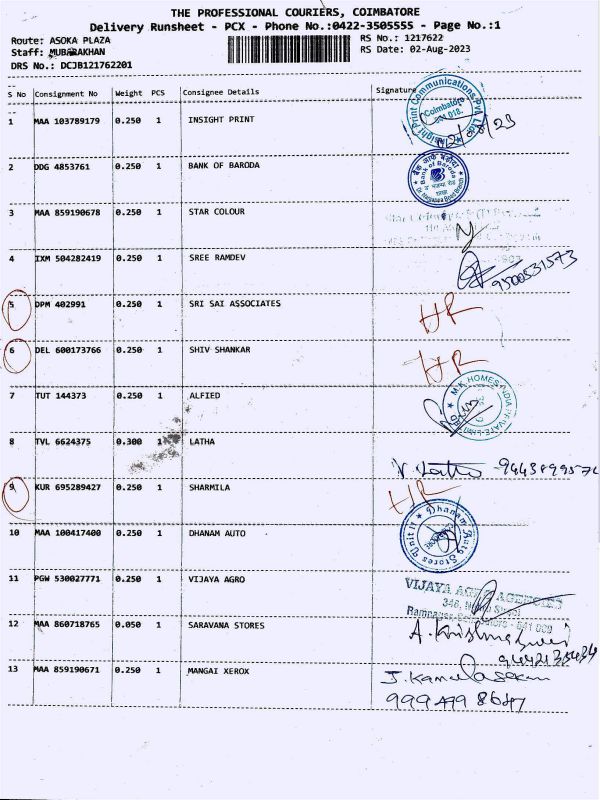 THE PROFESSIONAL COURIERS, COIMBATORE
Delivery Runsheet - PCX - Phone No.:0422-3505555 - Page No.:1
Route: ASOKA PLAZA RS No.: 1217622
Staff: MUBARAKHAN RS Date: 02-Aug-2023
DRS No.: DCJB121762201
S No Consignment No Weight PCS Consignee Details Signature
1 MAA 103789179 0.250 1 INSIGHT PRINT
Insight Print Communications Pvt. Ltd.
Coimbatore
2 DDG 4853761 0.250 1 BANK OF BARODA
Bank of Baroda
3 MAA 859190678 0.250 1 STAR COLOUR
4 IXM 504282419 0.250 1 SREE RAMDEV
9500531573
5 DPM 402991 0.250 1 SRI SAI ASSOCIATES HR
6 DEL 600173766 0.250 1 SHIV SHANKAR HR
7 TUT 144373 0.250 1 ALFIED
M.K HOMES INDIA PRIVATE LIMITED
8 TVL 6624375 0.300 1 LATHA
V. Latha
9 KUR 695289427 0.250 1 SHARMILA HR
10 MAA 100417400 0.250 1 DHANAM AUTO
Dhanam Auto Stores Unit II
11 PGW 530027771 0.250 1 VIJAYA AGRO
VIJAYA AGRO AGENCIES
12 MAA 860718765 0.050 1 SARAVANA STORES
13 MAA 859190671 0.250 1 MANGAI XEROX